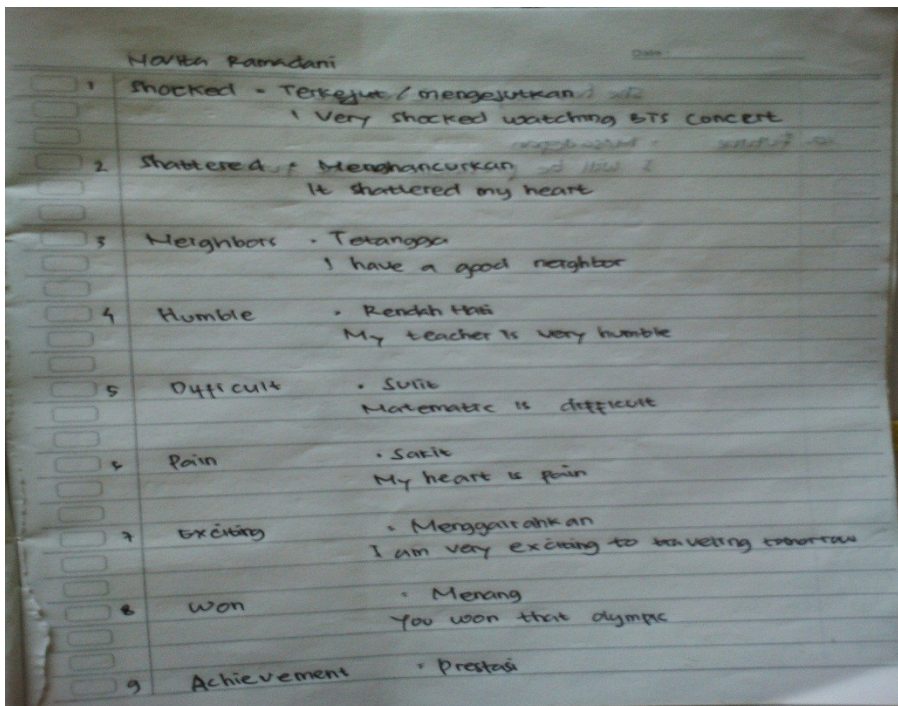 Novita Ramadani
Date:
1 Shocked = Terkejut / mengejutkan
I Very shocked watching BTS concert
2 Shattered = Menghancurkan
It shattered my heart
3 Neighbors = Tetangga
I have a good neighbor
4 Humble = Rendah Hati
My teacher is very humble
5 Difficult = Sulit
Matematic is difficult
6 Pain = Sakit
My heart is pain
7 Exciting = Menggairahkan
I am very exciting to traveling tomorrow
8 Won = Menang
You won that olympic
9 Achievement = Prestasi